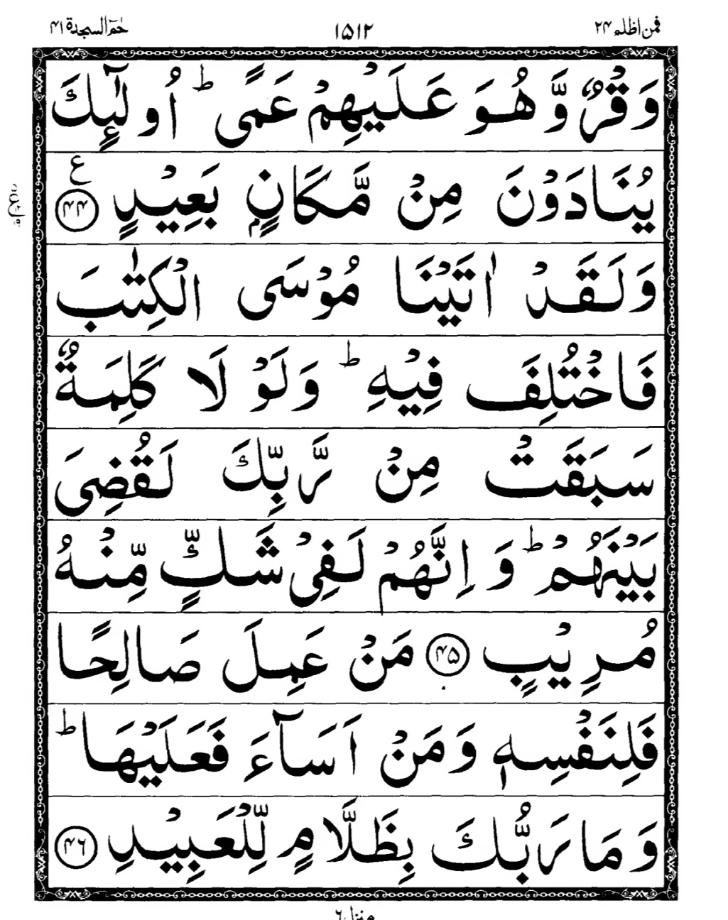 فمن اظلم ۲۴ ۱۵۱۲ حٰمٓ السجدة ۴۱
وَقْرٌ وَّ هُوَ عَلَيْهِمْ عَمًى ؕ اُولٰٓئِكَ
يُنَادَوْنَ مِنْ مَّكَانٍۭ بَعِيْدٍ ﴿۴۴﴾ ع
وَلَقَدْ اٰتَيْنَا مُوْسَى الْكِتٰبَ
فَاخْتُلِفَ فِيْهِ ؕ وَلَوْ لَا كَلِمَةٌ
سَبَقَتْ مِنْ رَّبِّكَ لَقُضِىَ
بَيْنَهُمْ ؕ وَ اِنَّهُمْ لَفِىْ شَكٍّ مِّنْهُ
مُرِيْبٍ ﴿۴۵﴾ مَنْ عَمِلَ صَالِحًا
فَلِنَفْسِهٖ وَمَنْ اَسَآءَ فَعَلَيْهَا ؕ
وَ مَا رَبُّكَ بِظَلَّامٍ لِّلْعَبِيْدِ ﴿۴۶﴾
منزل ۶